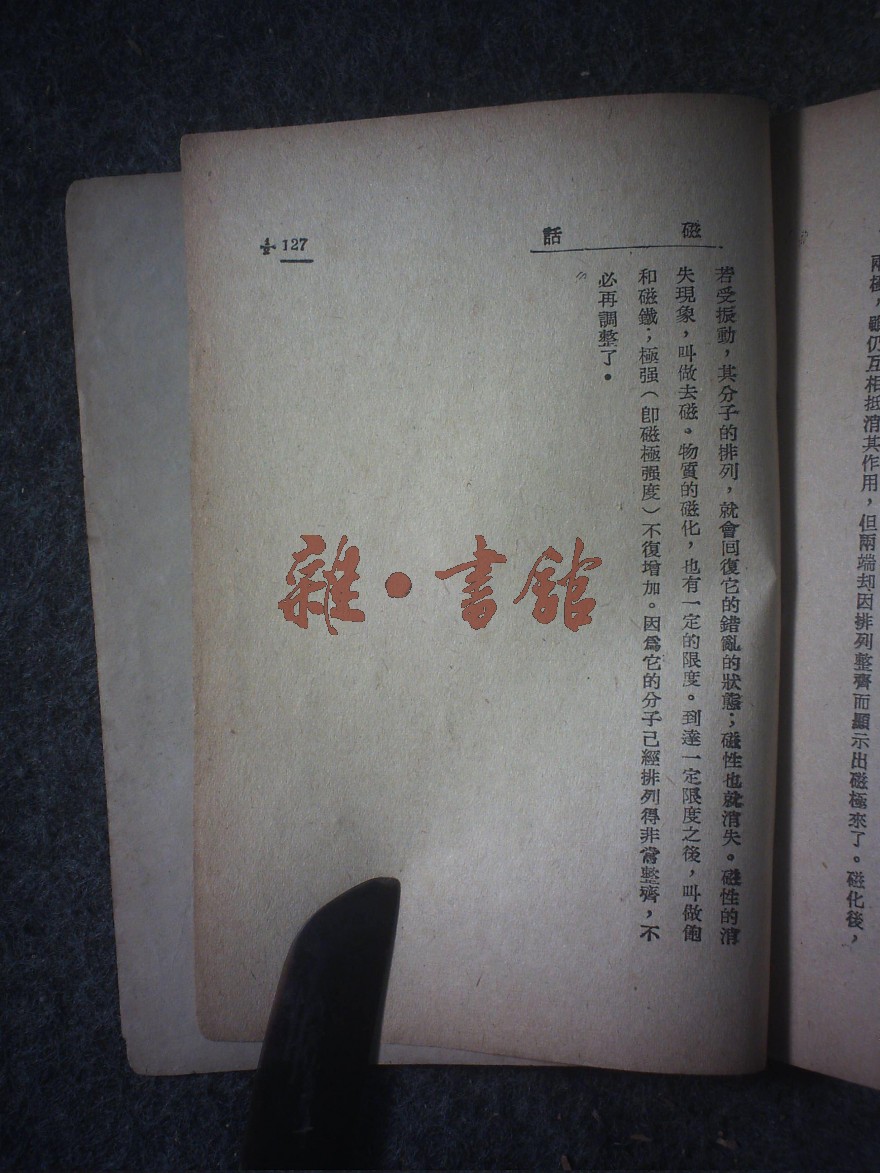 兩極，雖仍互相抵消其作用，但兩端却因排列整齊而顯示出磁極來了。磁化後，
磁話
若受振動，其分子的排列，就會回復它的錯亂的狀態；磁性也就消失。磁性的消
失現象，叫做去磁。物質的磁化，也有一定的限度。到達一定限度之後，叫做飽
和磁鐵；極强（卽磁極强度）不復增加。因爲它的分子已經排列得非常整齊，不
必再調整了。
127
雜·書館